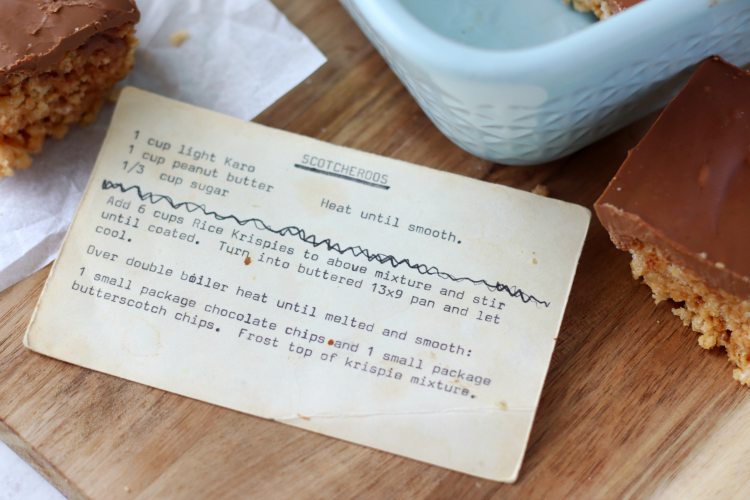 SCOTCHEROOS
1 cup light Karo
1 cup peanut butter
1/3 cup sugar
Heat until smooth.
Add 6 cups Rice Krispies to above mixture and stir
until coated. Turn into buttered 13x9 pan and let
cool.
Over double boiler heat until melted and smooth:
1 small package chocolate chips and 1 small package
butterscotch chips. Frost top of krispie mixture.